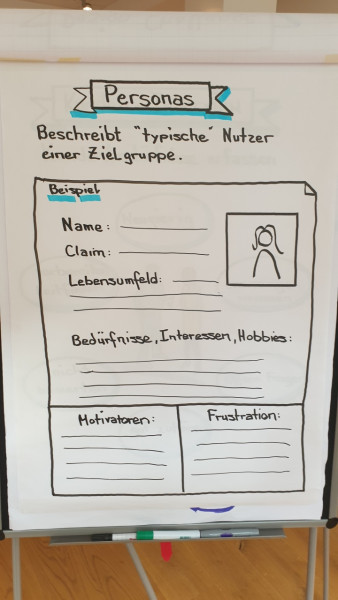 Personas
Beschreibt "typische" Nutzer
einer Zielgruppe.
Beispiel
Name:
Claim:
Lebensumfeld:
Bedürfnisse, Interessen, Hobbies:
Motivatoren:
Frustration: